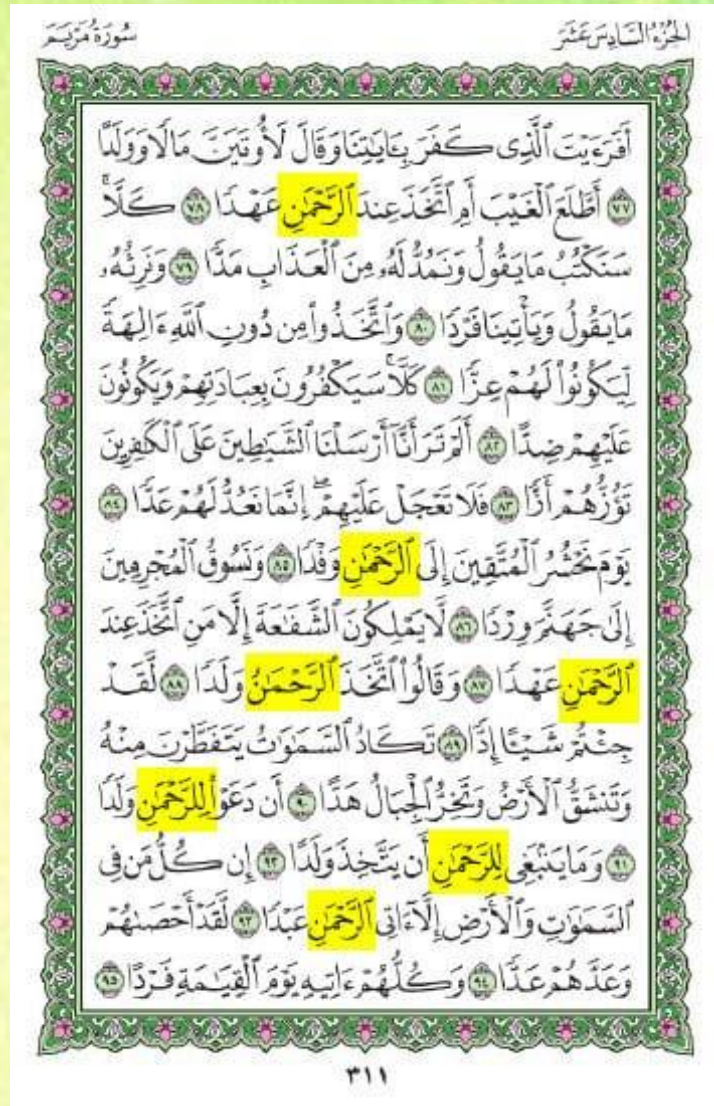 الجزء السادس عشر سورة مريم
أَفَرَءَيْتَ ٱلَّذِى كَفَرَ بِـَٔايَٰتِنَا وَقَالَ لَأُوتَيَنَّ مَالًا وَوَلَدًا
٧٧ أَطَّلَعَ ٱلْغَيْبَ أَمِ ٱتَّخَذَ عِندَ ٱلرَّحْمَٰنِ عَهْدًا ٧٨ كَلَّا ۚ
سَنَكْتُبُ مَا يَقُولُ وَنَمُدُّ لَهُۥ مِنَ ٱلْعَذَابِ مَدًّا ٧٩ وَنَرِثُهُۥ
مَا يَقُولُ وَيَأْتِينَا فَرْدًا ٨٠ وَٱتَّخَذُوا۟ مِن دُونِ ٱللَّهِ ءَالِهَةً
لِّيَكُونُوا۟ لَهُمْ عِزًّا ٨١ كَلَّا ۚ سَيَكْفُرُونَ بِعِبَادَتِهِمْ وَيَكُونُونَ
عَلَيْهِمْ ضِدًّا ٨٢ أَلَمْ تَرَ أَنَّآ أَرْسَلْنَا ٱلشَّيَٰطِينَ عَلَى ٱلْكَٰفِرِينَ
تَؤُزُّهُمْ أَزًّا ٨٣ فَلَا تَعْجَلْ عَلَيْهِمْ ۖ إِنَّمَا نَعُدُّ لَهُمْ عَدًّا ٨٤
يَوْمَ نَحْشُرُ ٱلْمُتَّقِينَ إِلَى ٱلرَّحْمَٰنِ وَفْدًا ٨٥ وَنَسُوقُ ٱلْمُجْرِمِينَ
إِلَىٰ جَهَنَّمَ وِرْدًا ٨٦ لَّا يَمْلِكُونَ ٱلشَّفَٰعَةَ إِلَّا مَنِ ٱتَّخَذَ عِندَ
ٱلرَّحْمَٰنِ عَهْدًا ٨٧ وَقَالُوا۟ ٱتَّخَذَ ٱلرَّحْمَٰنُ وَلَدًا ٨٨ لَّقَدْ
جِئْتُمْ شَيْـًٔا إِدًّا ٨٩ تَكَادُ ٱلسَّمَٰوَٰتُ يَتَفَطَّرْنَ مِنْهُ
وَتَنشَقُّ ٱلْأَرْضُ وَتَخِرُّ ٱلْجِبَالُ هَدًّا ٩٠ أَن دَعَوْا۟ لِلرَّحْمَٰنِ وَلَدًا
٩١ وَمَا يَنۢبَغِى لِلرَّحْمَٰنِ أَن يَتَّخِذَ وَلَدًا ٩٢ إِن كُلُّ مَن فِى
ٱلسَّمَٰوَٰتِ وَٱلْأَرْضِ إِلَّآ ءَاتِى ٱلرَّحْمَٰنِ عَبْدًا ٩٣ لَّقَدْ أَحْصَىٰهُمْ
وَعَدَّهُمْ عَدًّا ٩٤ وَكُلُّهُمْ ءَاتِيهِ يَوْمَ ٱلْقِيَٰمَةِ فَرْدًا ٩٥
٣١١